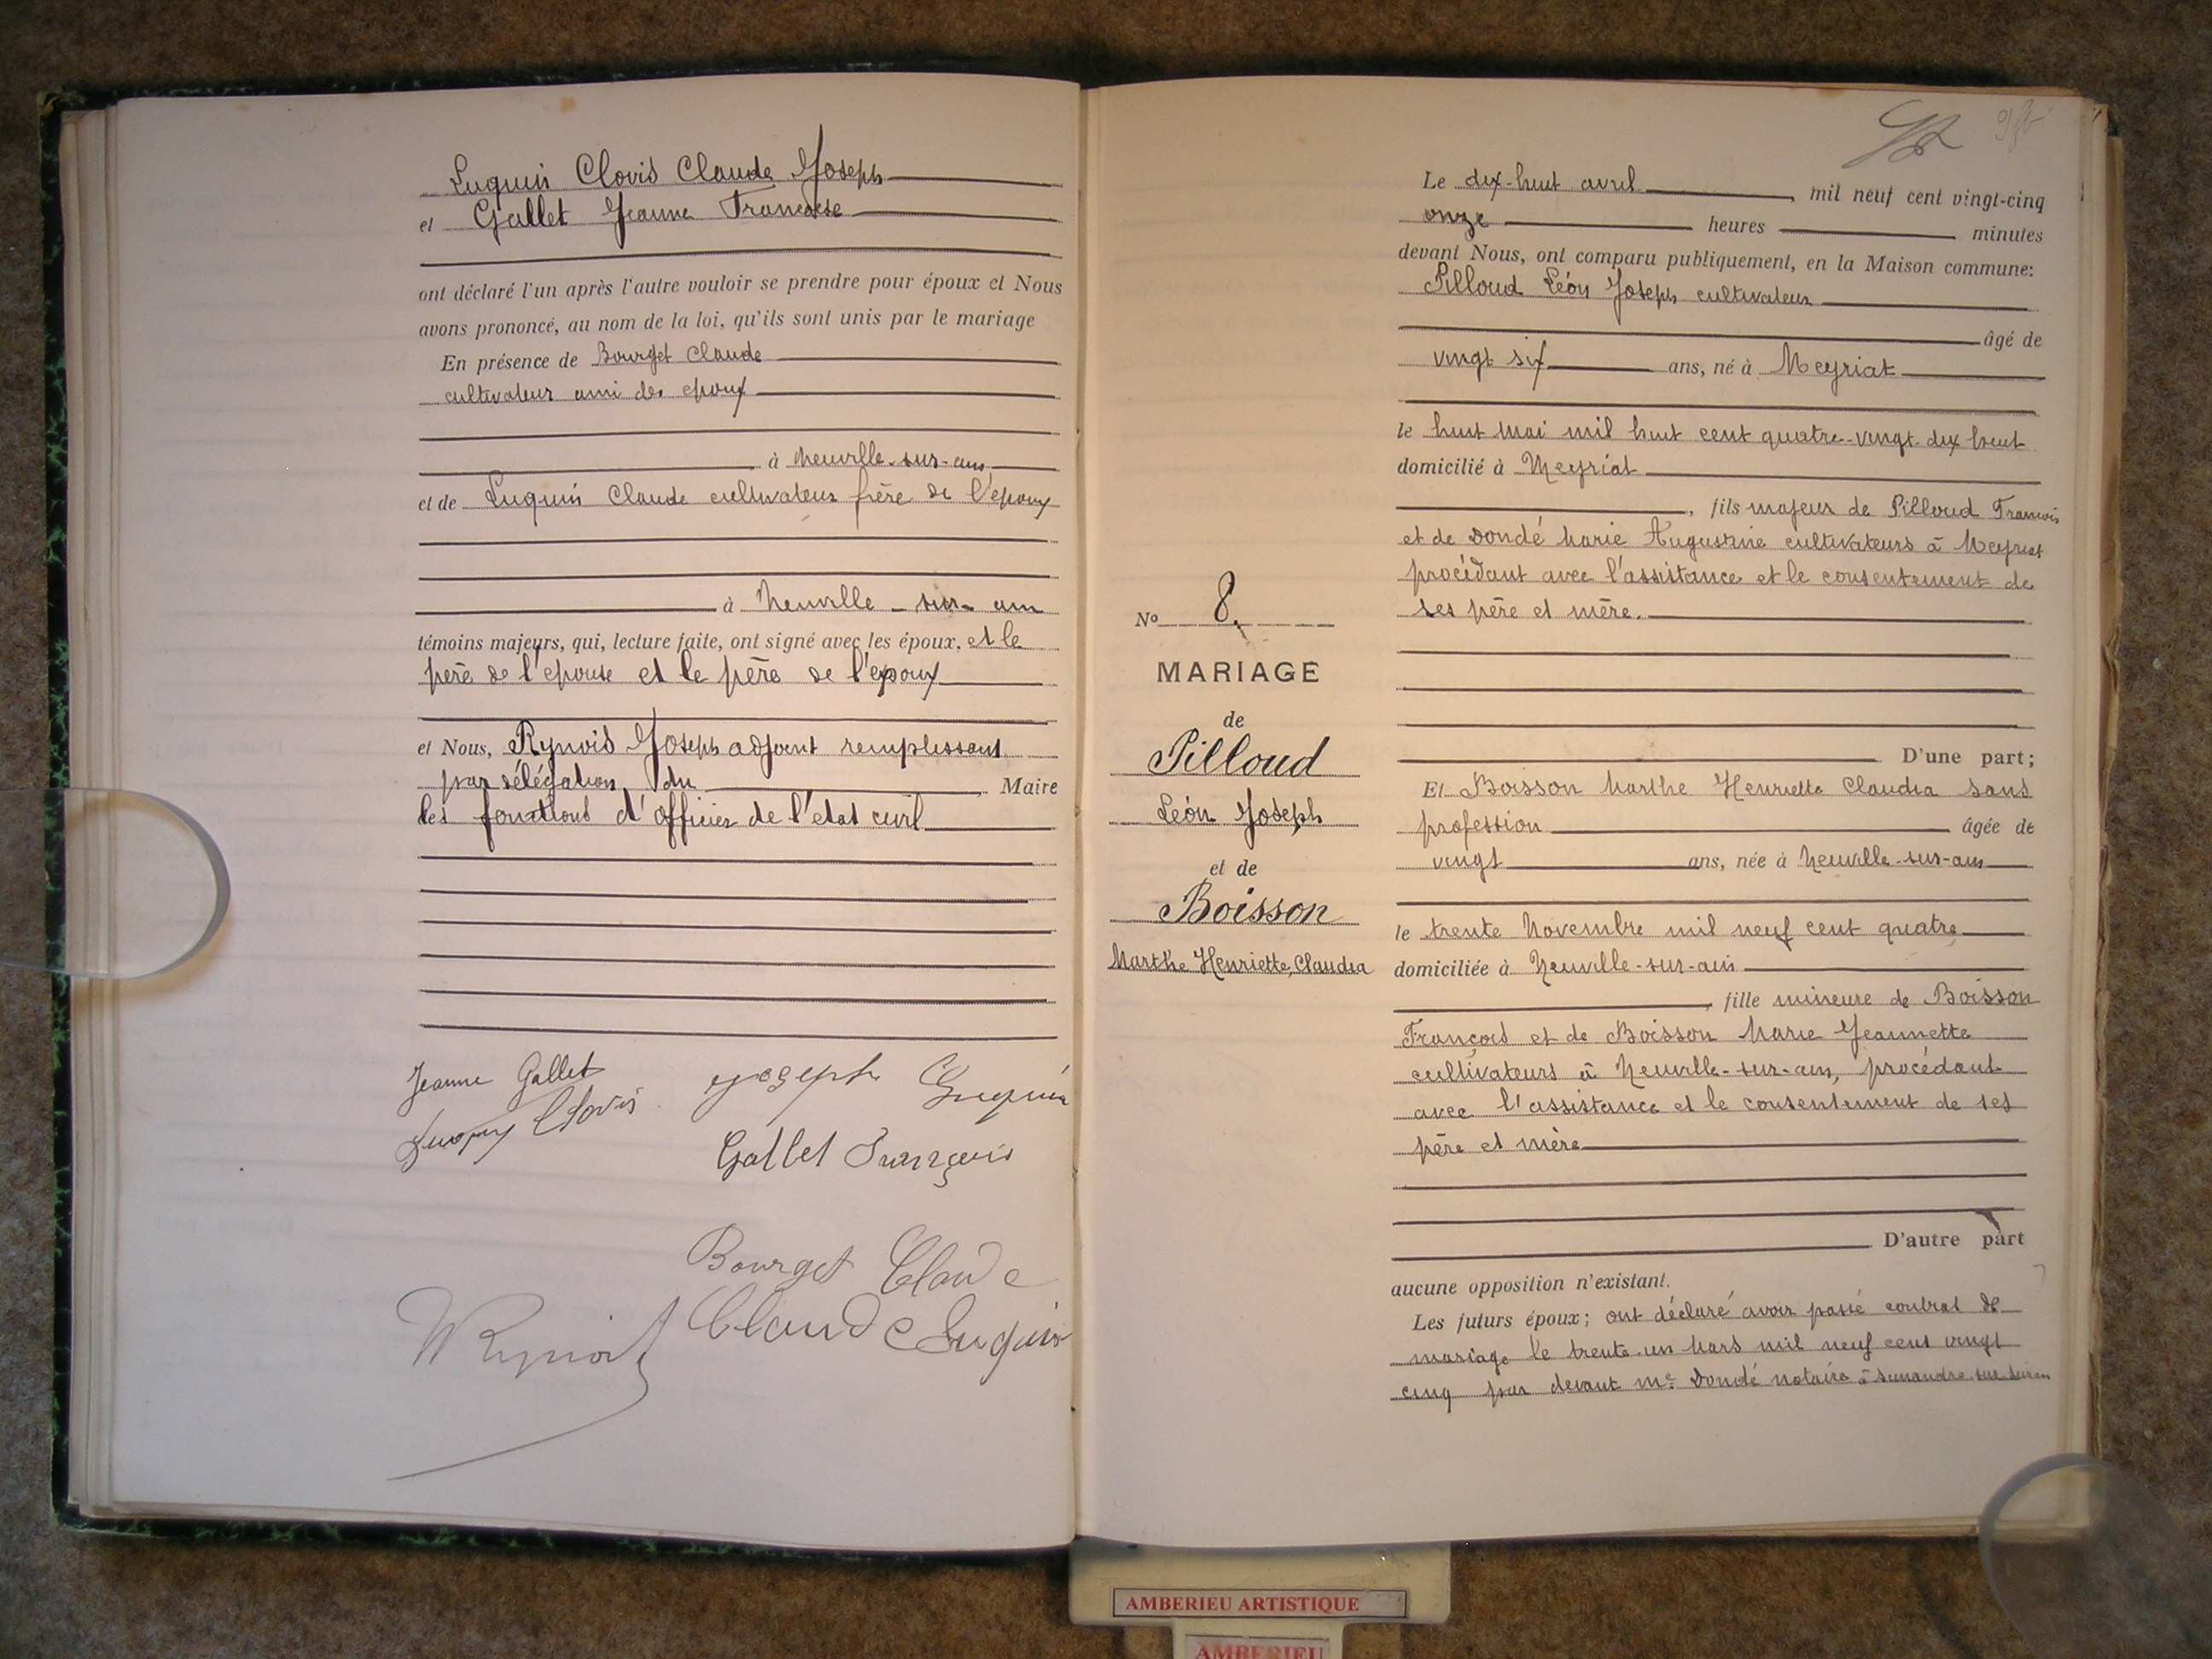 Luquin Clovis Claude Joseph
et Gallet Jeanne Francoise
ont déclaré l'un après l'autre vouloir se prendre pour époux et Nous
avons prononcé, au nom de la loi, qu'ils sont unis par le mariage
En présence de Bourget Claude
cultivateur ami des epoux
à Neuville-sur-ain
et de Luquin Claude cultivateur frère de l'époux
à Neuville-sur-ain
témoins majeurs, qui, lecture faite, ont signé avec les époux, et le
père de l'epouse et le père de l'époux
et Nous, Joseph adjoint remplissant
par délégation du Maire
les fonctions d'officier de l'etat civil
Jeanne Gallet
Joseph Luquin
Clovis
Gallet François
Bourget Claude
Claude Luquin
Le dix-huit avril mil neuf cent vingt-cinq
onze heures minutes
devant Nous, ont comparu publiquement, en la Maison commune:
Pilloud Léon Joseph cultivateur
âgé de
vingt six ans, né à Meyriat
le huit Mai mil huit cent quatre-vingt-dix huit
domicilié à Meyriat
, fils majeur de Pilloud Francois
et de Dondé Marie Augustine cultivateurs à Meyriat
procédant avec l'assistance et le consentement de
ses père et mère.
D'une part;
No 8.
MARIAGE
de
Pilloud
Léon Joseph
et de
Boisson
Marthe Henriette, Claudia
Et Boisson Marthe Henriette Claudia sans
profession âgée de
vingt ans, née à Neuville-sur-ain
le trente Novembre mil neuf cent quatre
domiciliée à Neuville-sur-ain
, fille mineure de Boisson
François et de Boisson Marie Jeannette
cultivateurs à Neuville-sur-ain, procédant
avec l'assistance et le consentement de ses
père et mère
D'autre part
aucune opposition n'existant.
Les futurs époux; ont déclaré avoir passé contrat de
mariage le trente-un Mars mil neuf cent vingt
cinq par devant Me Dondé notaire à
AMBERIEU ARTISTIQUE
AMBERIEU